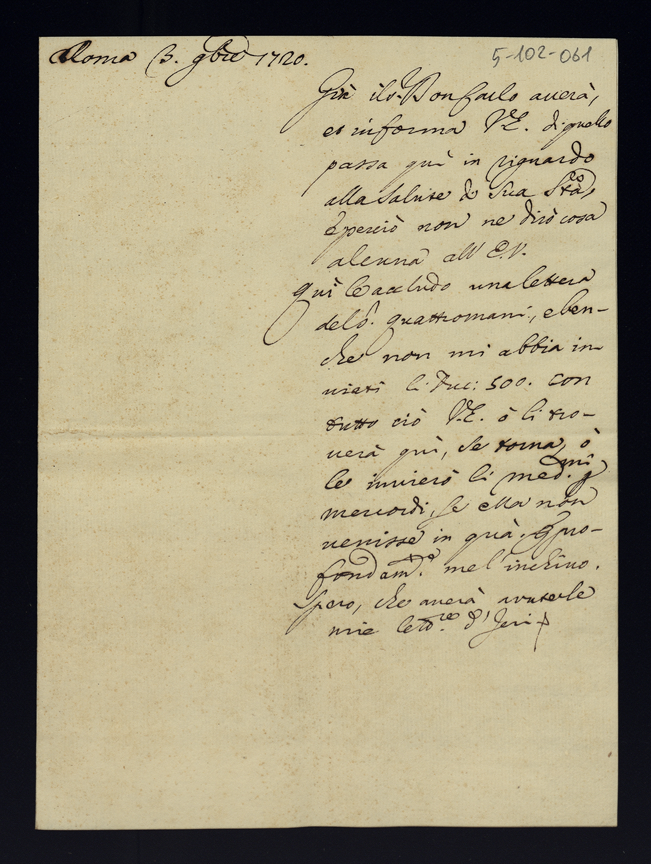 Roma 3. 9bre 1720.
5-102-061
Già il S.r Bonfaolo averà,
et informa V.E. di quello
passa quì in riguardo
alla Salute di Sua St.à,
e perciò non ne dirò cosa
alcuna all' E.V.
Quì le accludo una lettera
del S.r quattromani, e ben-
che non mi abbia in-
viati li Duc: 500. con
tutto ciò V.E. ò li tro-
verà quì, se torna, ò
le invierò li med.mi p
mercordì, se ella non
venisse in quà. E pro-
fondam.te me l'inchino.
Spero, che averà avute le
mie lett.re d'Jeri